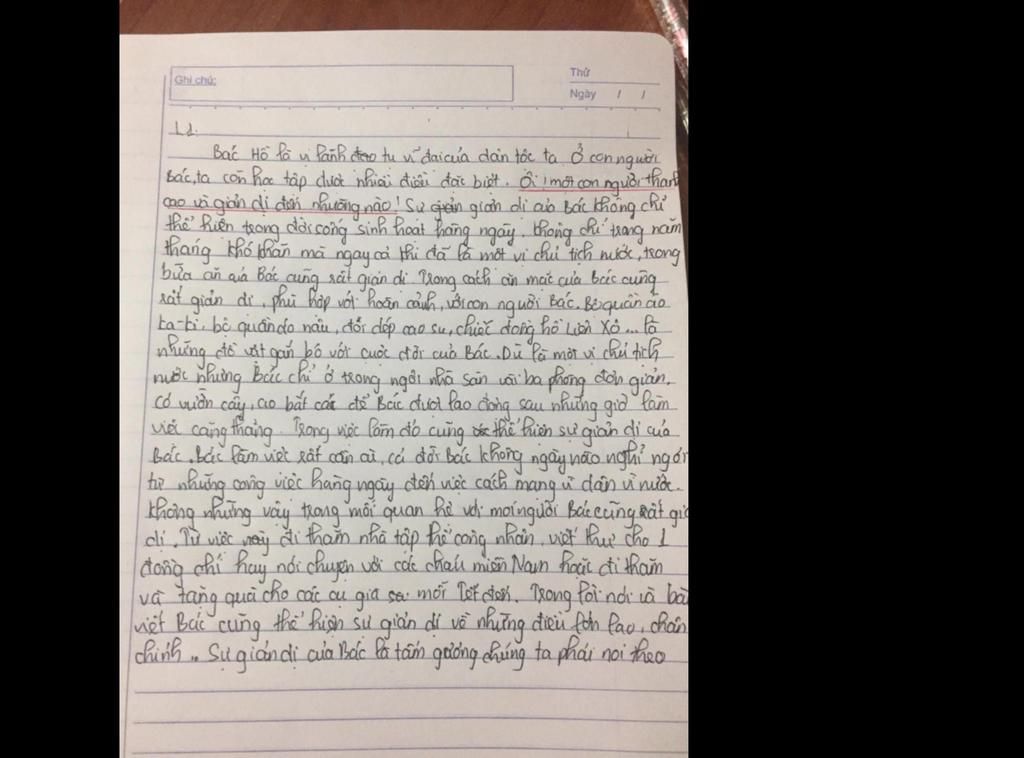 Ghi chú:
Thứ
Ngày / /
Bác Hồ là vị lãnh tụ vĩ đại của dân tộc ta Ở con người
Bác, ta còn học tập được nhiều điều đặc biệt. Ôi! một con người thanh
cao và giản dị đến nhường nào! Sự giản dị của Bác không chỉ
thể hiện trong đời sống sinh hoạt hàng ngày. Không chỉ trong năm
tháng khó khăn mà ngay cả khi đã là một vị chủ tịch nước, trong
bữa ăn của Bác cũng rất giản dị. Trong cách ăn mặc của Bác cũng
rất giản dị, phù hợp với hoàn cảnh, với con người Bác. Bộ quần áo
ka-ki, bộ quần áo nâu, đôi dép cao su, chiếc đồng hồ Liên Xô... là
những đồ vật gắn bó với cuộc đời của Bác. Dù là một vị chủ tịch
nước nhưng Bác chỉ ở trong ngôi nhà sàn vài ba phòng đơn giản.
Có vườn cây, ao bắt cá để Bác được lao động sau những giờ làm
việc căng thẳng. Trong việc làm đó cũng thể hiện sự giản dị của
Bác. Bác làm việc rất cần cù, cả đời Bác không ngày nào nghỉ ngơi
từ những công việc hàng ngày đến việc cách mạng vì dân vì nước.
Không những vậy trong mối quan hệ với mọi người Bác cũng rất giả
dị. Từ việc đi thăm nhà tập thể công nhân, viết thư cho 1
đồng chí hay nói chuyện với các cháu miền Nam hoặc đi thăm
và tặng quà cho các cụ già mỗi Tết đến. Trong lời nói và bài
viết Bác cũng thể hiện sự giản dị về những điều lớn lao, chân
chính.. Sự giản dị của Bác là tấm gương chúng ta phải noi theo